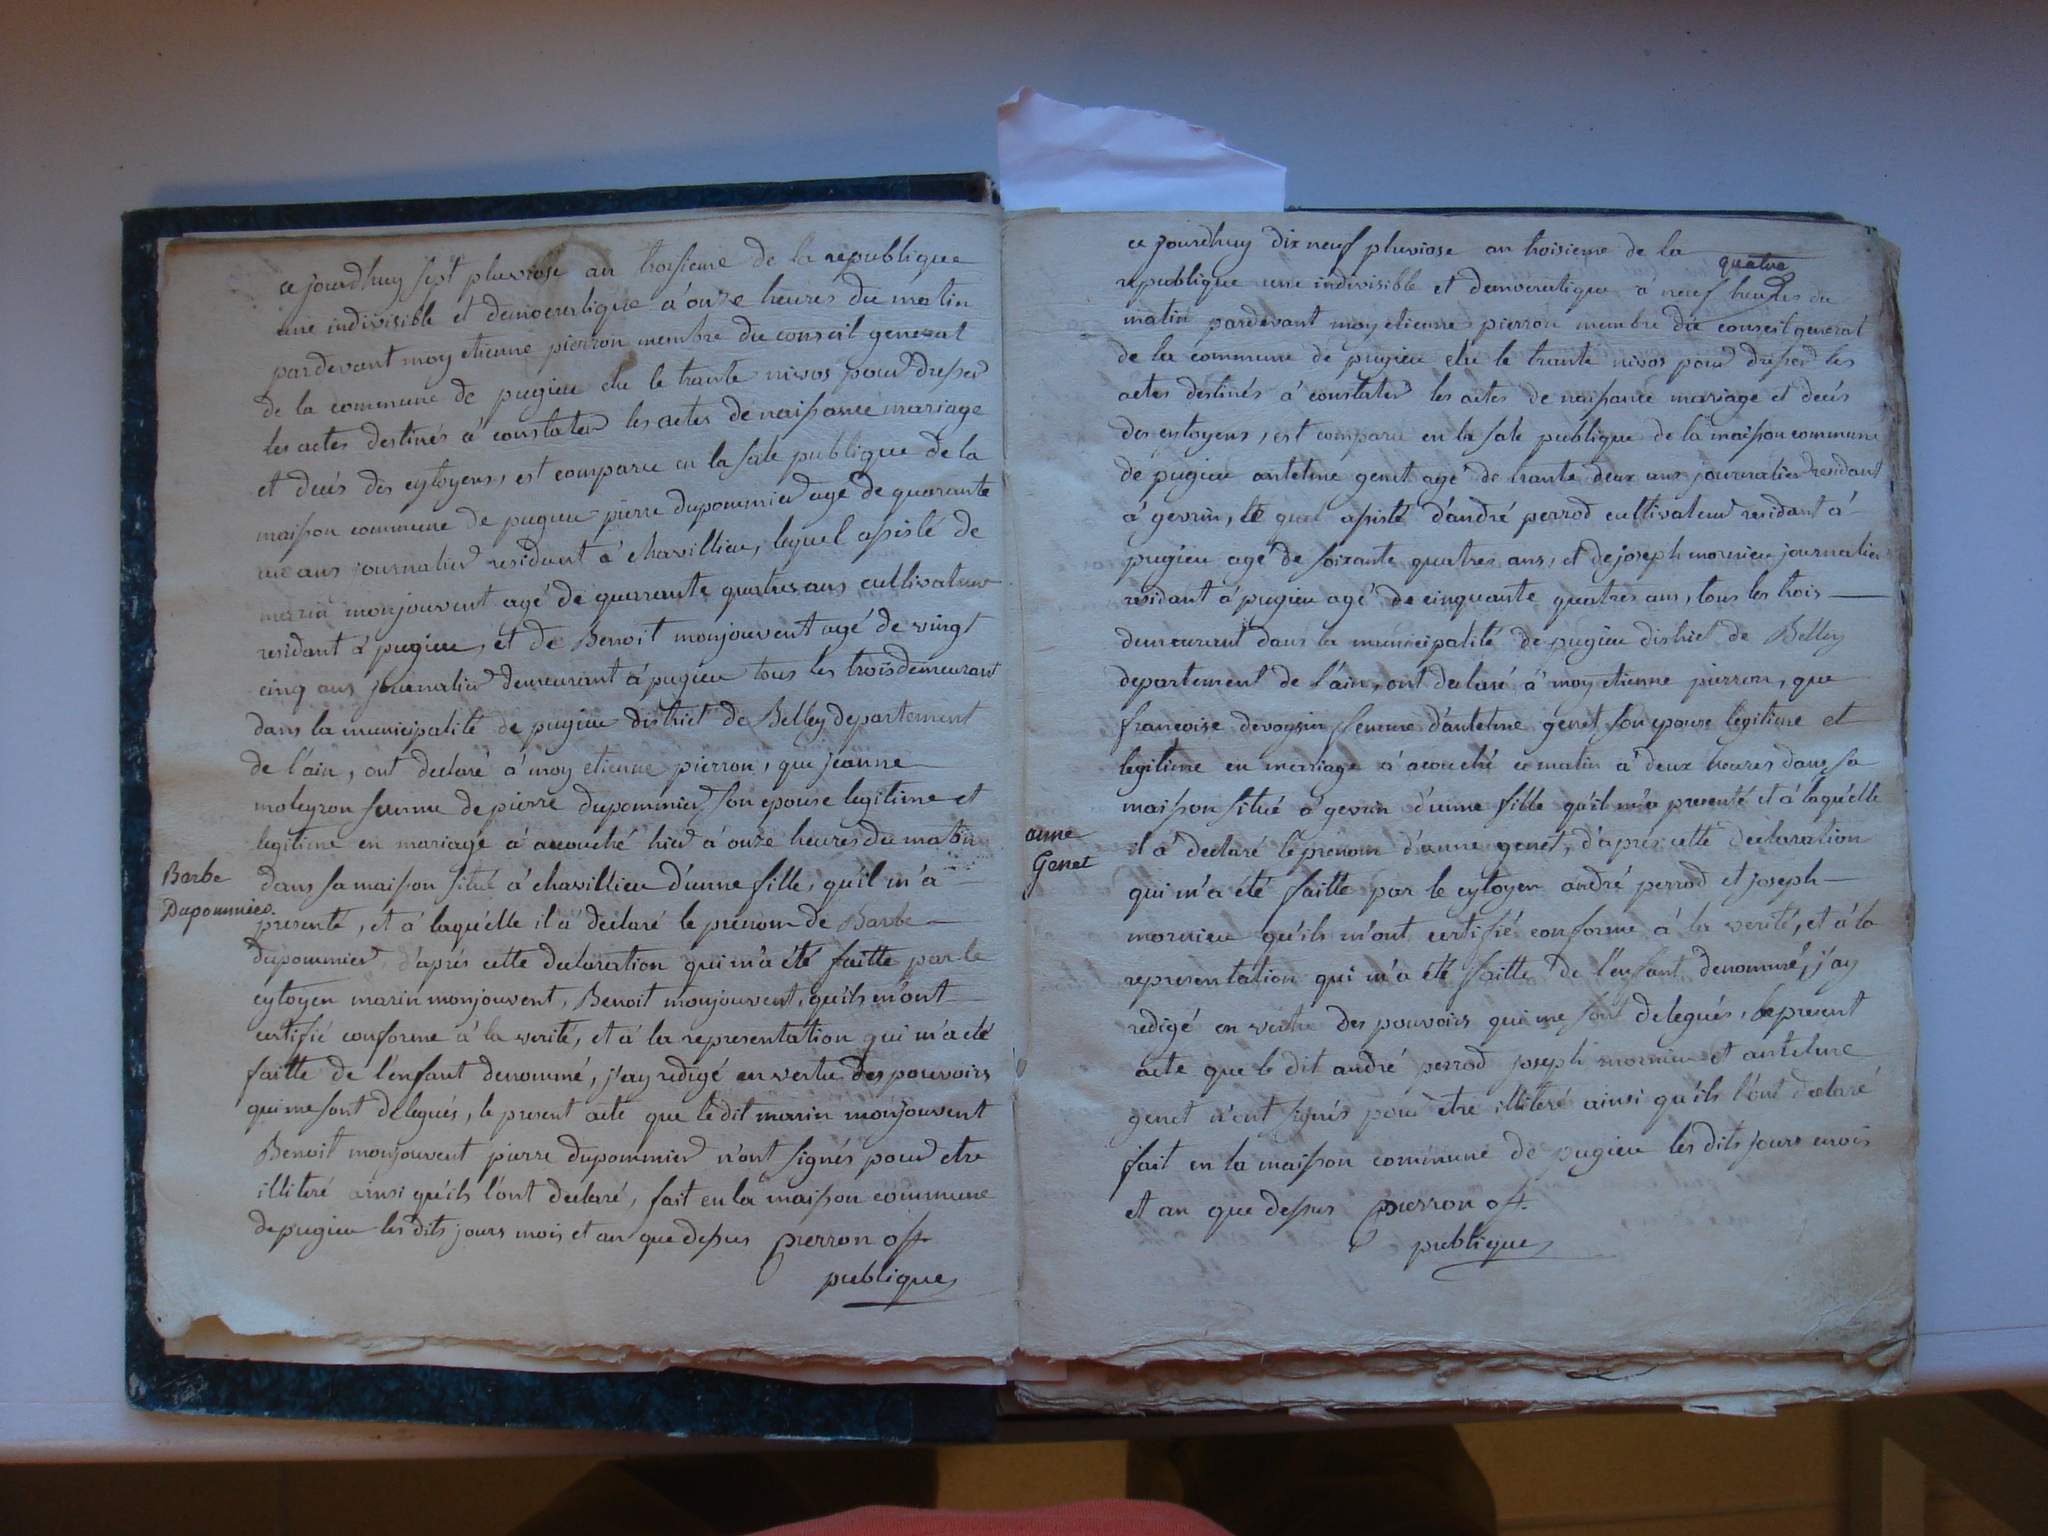 ce jourdhuy sept pluviose an troisieme de la republique
une indivisible et democratique a onze heures du matin
pardevant moy etienne pierron membre du conseil general
de la commune de pugieu elu le trante nivos pour dresser
les actes destinés a constater les actes de naissance mariage
et decés des cytoyens, est comparu en la sale publique de la
maison commune de pugieu pierre dupommier agé de quarante
ans journalier residant a chavillieu, lequel assisté de
marin monjouvent agé de quarante quatres ans cultivateur
residant à pugieu, et de Benoit monjouvent agé de vingt
cinq ans journalier demeurant à pugieu tous les trois demeurant
dans la municipalité de pugieu district de Belley departement
de l'ain, ont declaré à moy etienne pierron, que jeanne
moleyron femme de pierre dupommier son epouse legitime et
legitime en mariage a acouché hier à onze heures du matin
Barbe
Dupommier.
dans sa maison situé a chavillieu d'unne fille, qu'il m'a
presenté, et a laqu'elle il a declaré le prenom de Barbe
dupommier, d'aprés cette declaration qui m'a été faitte par le
cytoyen marin monjouvent, Benoit monjouvent, qu'ils m'ont
certifié conforme à la verité, et à la representation qui m'a été
faitte de l'enfant denommé, j'ay redigé en vertu des pouvoirs
qui me sont delegués, le present acte que le dit marin monjouvent
Benoit monjouvent pierre dupommier n'ont signés pour etre
illiteré ainsi qu'ils l'ont declaré, fait en la maison commune
de pugieu les dits jours mois et an que dessus pierron off.
publique
quatre
ce jourdhuy dix neuf pluviose an troisieme de la
republique une indivisible et democratique a neuf heures du
matin pardevant moy etienne pierron membre du conseil general
de la commune de pugieu elu le trante nivos pour dresser les
actes destinés à constater les actes de naissance mariage et decés
des cytoyens, est comparu en la sale publique de la maison commune
de pugieu antelme genet agé de trante deux ans journalier residant
a gevrin, le quel assisté d'andré perrod cultivateur residant à
pugieu agé de soixante quatres ans, et de joseph mornieu journalier
residant à pugieu agé de cinquante quatres ans, tous les trois
demeurant dans la municipalité de pugieu district de Belley
departement de l'ain, ont declaré à moy etienne pierron, que
francoise devoysin femme d'antelme genet son epouse legitime et
legitime en mariage à acouché ce matin à deux heures dans sa
maison situé a gevrin d'unne fille qu'il m'a presenté et à laqu'elle
anne
Genet
il a declaré le prenom d'anne genet, d'aprés cette declaration
qui m'a été faitte par le cytoyen andré perrod et joseph
mornieu qu'ils m'ont certifié conforme à la verité, et à la
representation qui m'a été faitte de l'enfant denommé, j'ay
redigé en vertu des pouvoirs qui me sont delegués, le present
acte que le dit andré perrod joseph mornieu et antelme
genet n'ont signés pour etre illiteré ainsi qu'ils l'ont declaré
fait en la maison commune de pugieu les dits jours mois
et an que dessus pierron off.
publique